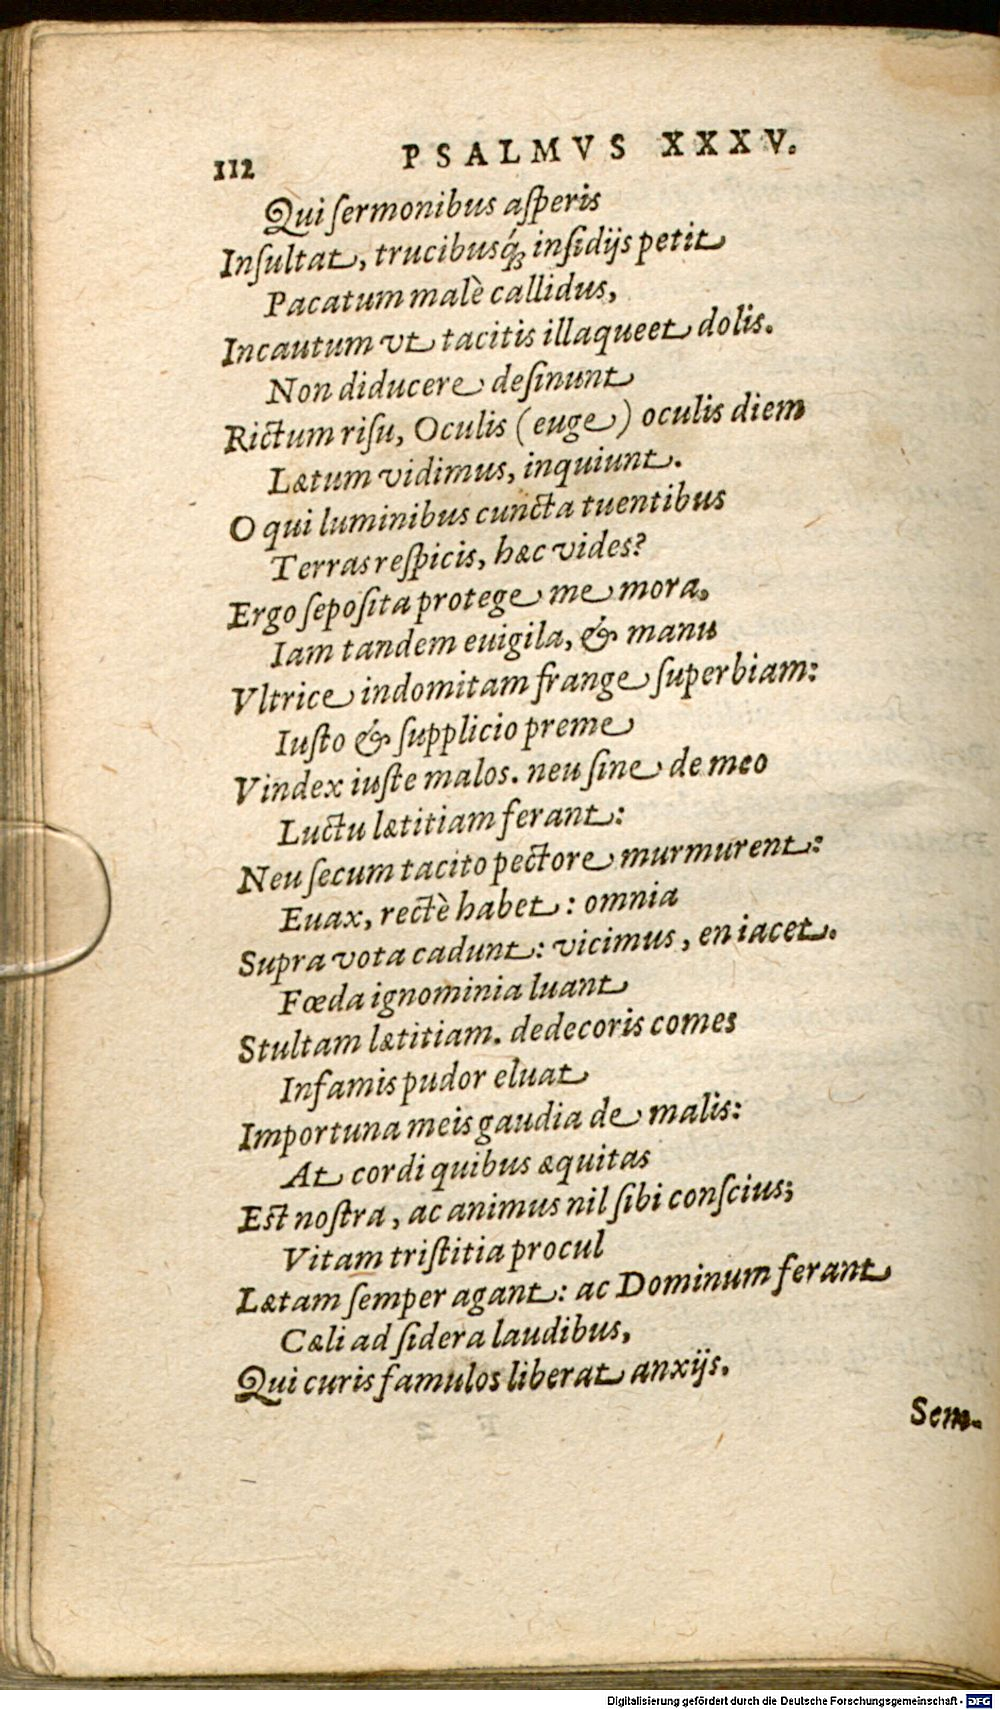 112 PSALMVS XXXV.
Qui ſermonibus aſperis
Inſultat, trucibusq́ꝫ inſidijs petit
Pacatum malè callidus,
Incautum vt tacitis illaqueet dolis.
Non diducere deſinunt
Rictum riſu, Oculis (euge) oculis diem
Lætum vidimus, inquiunt.
O qui luminibus cuncta tuentibus
Terras reſpicis, hæc vides?
Ergo ſepoſita protege me mora.
Iam tandem euigila, & manu
Vltrice indomitam frange ſuperbiam:
Iuſto & ſupplicio preme
Vindex iuſte malos. neu ſine de meo
Luctu lætitiam ferant:
Neu ſecum tacito pectore murmurent:
Euax, rectè habet: omnia
Supra vota cadunt: vicimus, en iacet.
Fœda ignominia luant
Stultam lætitiam. dedecoris comes
Infamis pudor eluat
Importuna meis gaudia de malis:
At cordi quibus æquitas
Eſt noſtra, ac animus nil ſibi conſcius;
Vitam triſtitia procul
Lætam ſemper agant: ac Dominum ferant
Cæli ad ſidera laudibus,
Qui curis famulos liberat anxijs.
Sem-
Digitalisierung gefördert durch die Deutsche Forschungsgemeinschaft - DFG